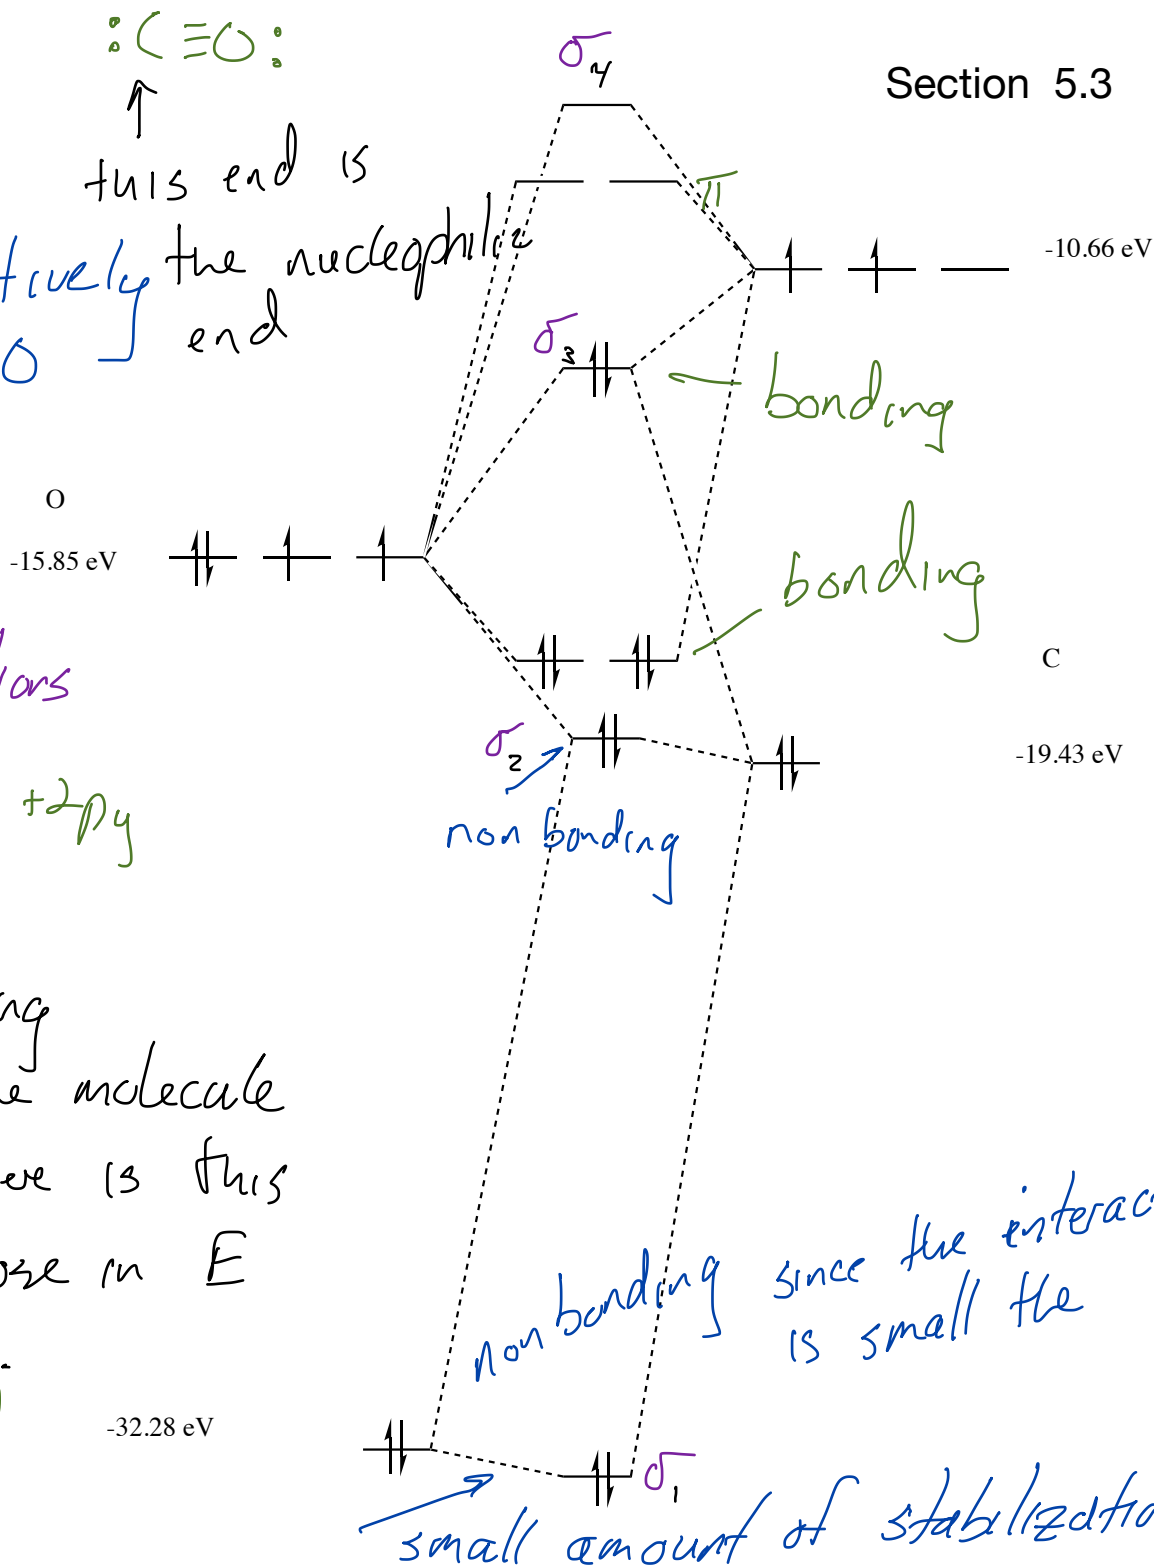 :C≡O:
σ4
Section 5.3
this end is
π
tively the nucleophilic
-10.66 eV
O end
σ3
bonding
O
-15.85 eV
bonding
C
σ2
-19.43 eV
+2py
non bonding
ng
e molecule
ere is this
ose in E
non bonding since the interac
is small the
-32.28 eV
σ1
small amount of stabilizatio